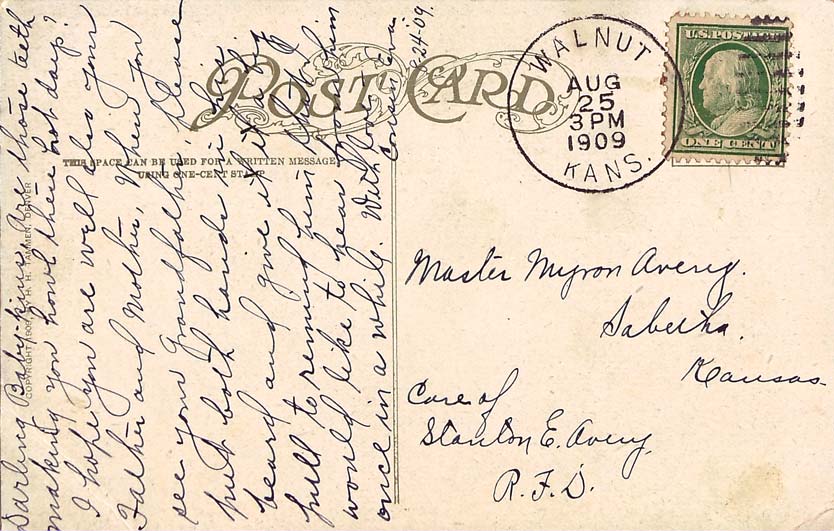 Darling Baby-kins, Are those teeth
making you howl these hot days?
I hope you are well also your
Father and Mother, When you
see your Grandfather, please
put both hands in his
beard and give it a big
pull to remind him that I
would like to hear from him
once in a while. With love,
Cousin
8-24-09.
POST CARD
THIS SPACE CAN BE USED FOR A WRITTEN MESSAGE
USING ONE-CENT STAMP
COPYRIGHT 1909, BY H. H. TAMMEN, DENVER
WALNUT
AUG
25
3 PM
1909
KANS.
U.S. POST
ONE CENT
Master Myron Avery.
Sabetha.
Kansas.
Care of
Stanton E. Avery,
R.F.D.